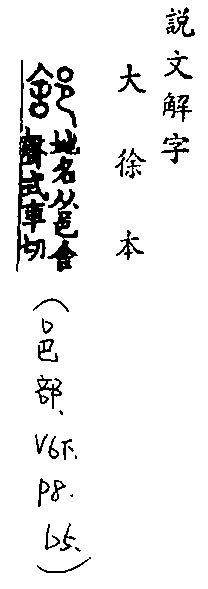 說文解字
大徐本
地名从邑舍
聲式車切
(邑部、V6下. P8. b5.)